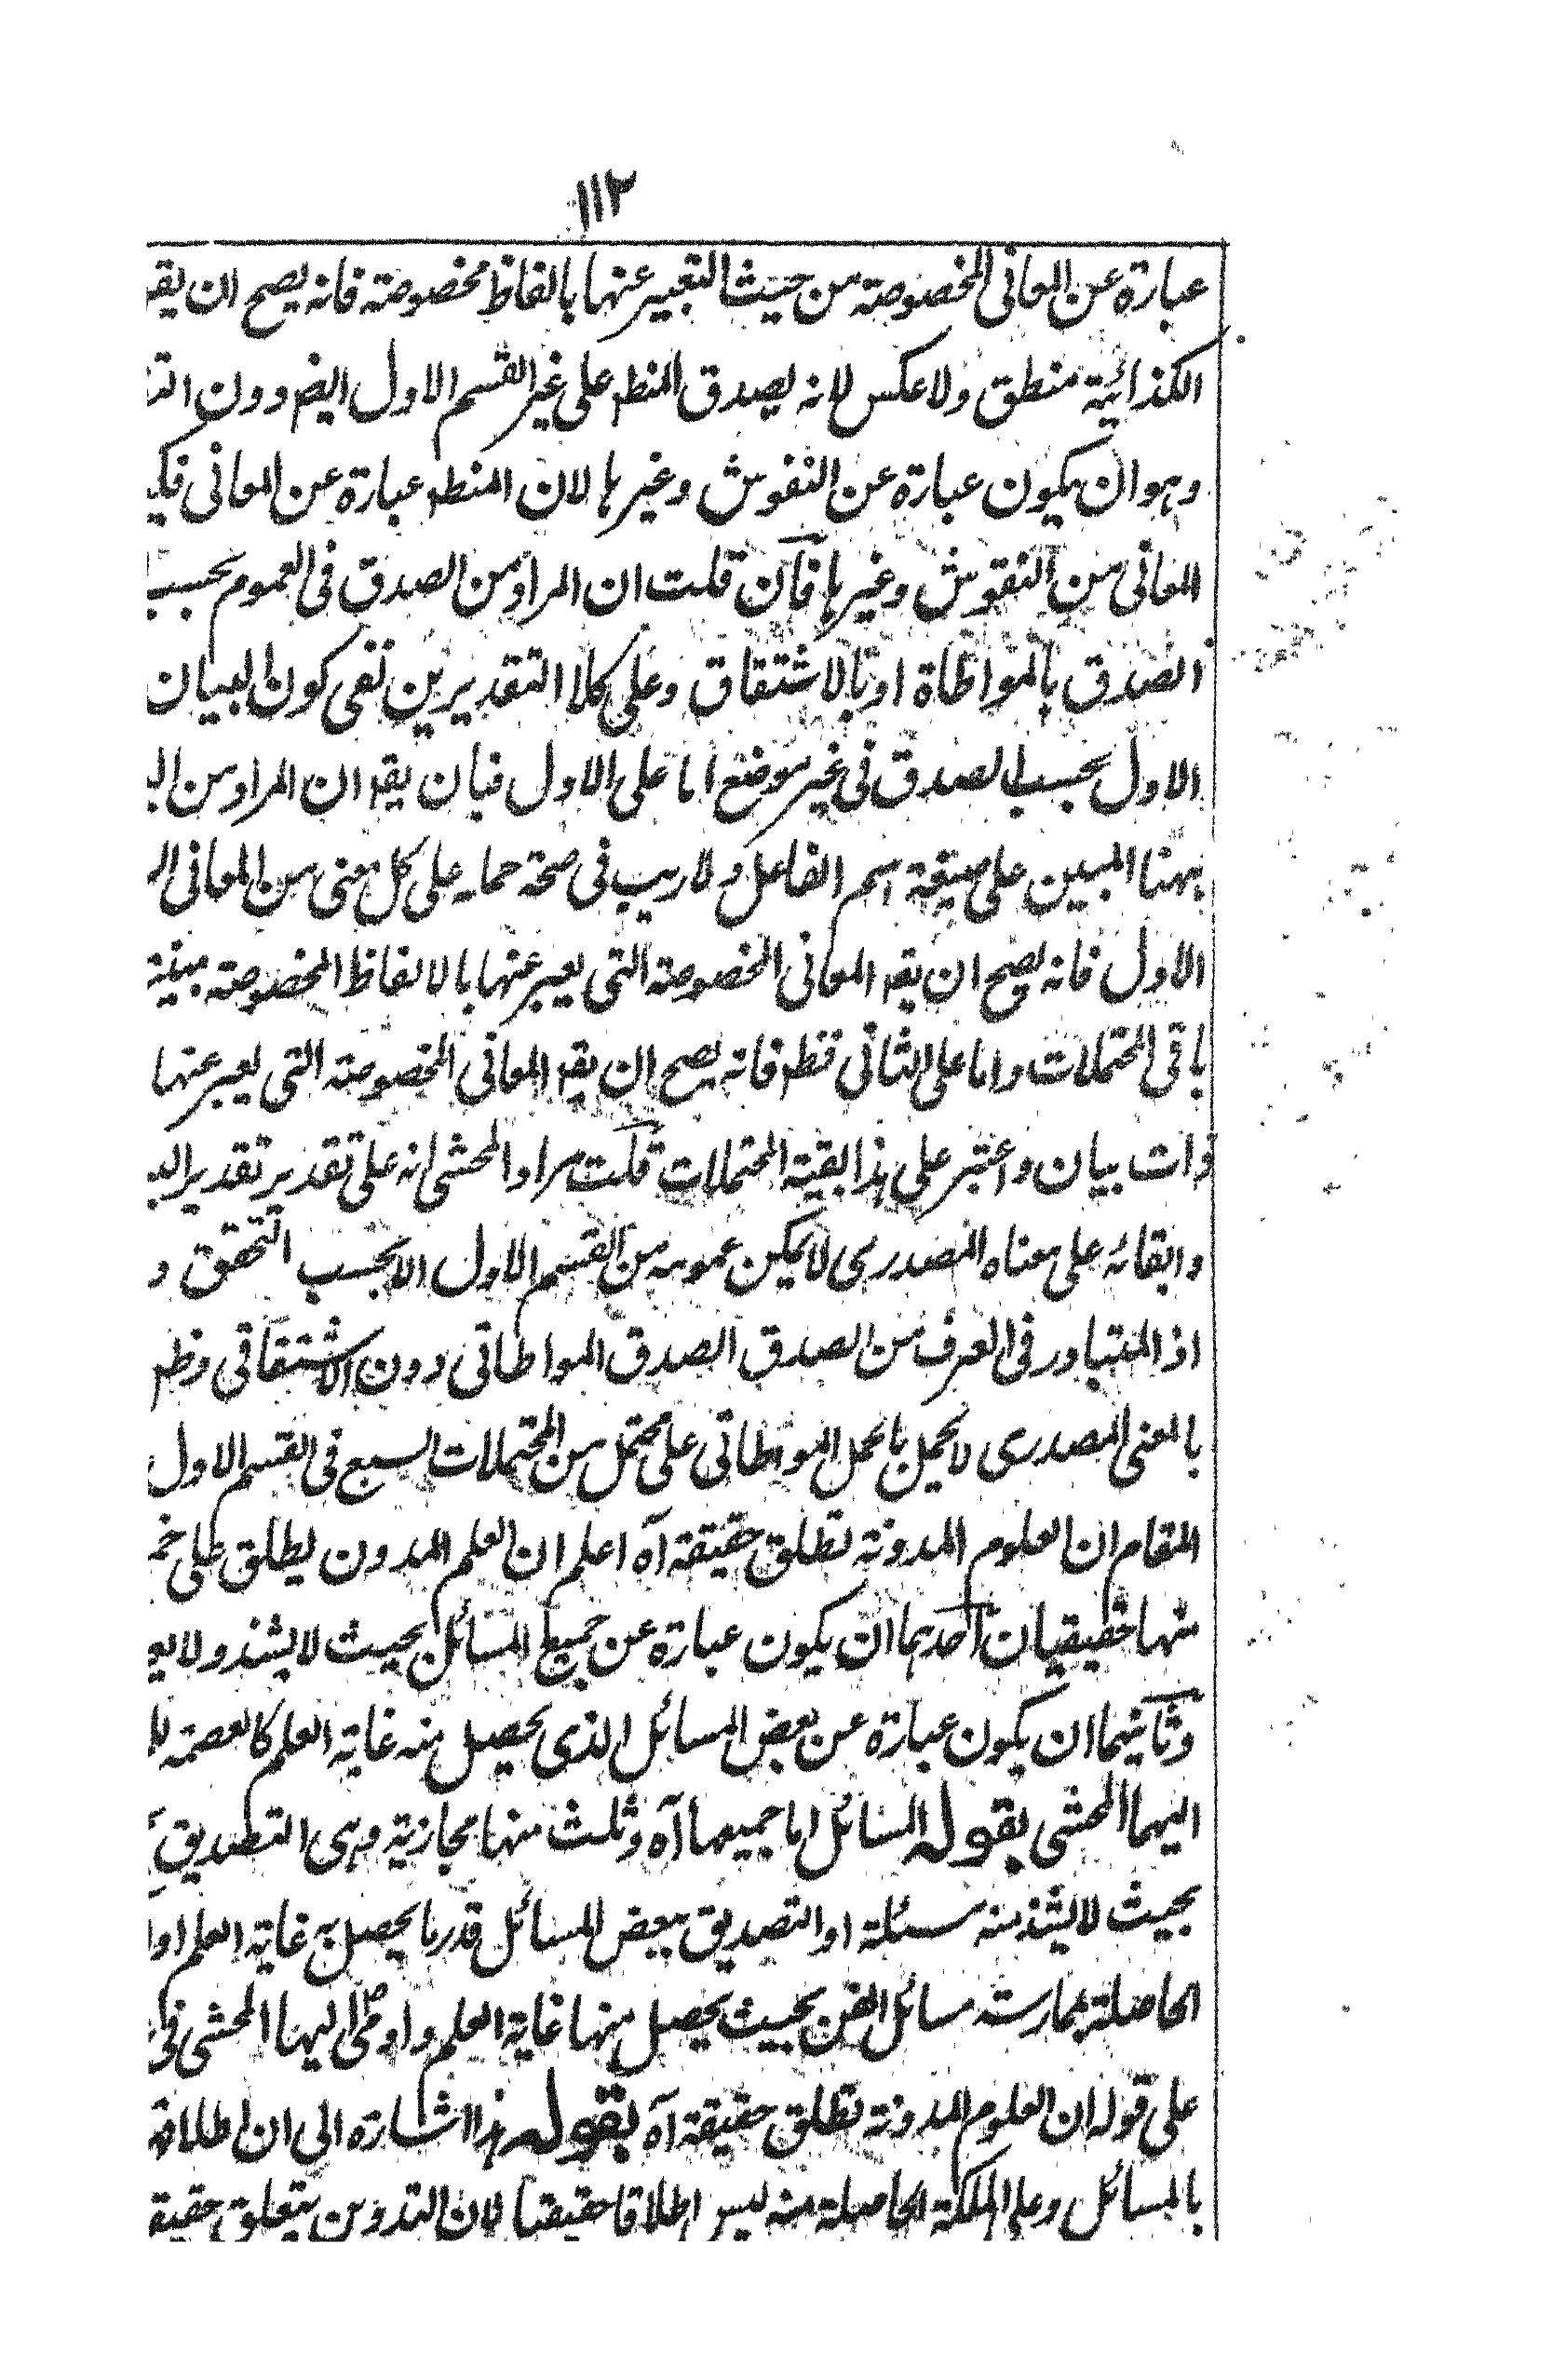 ١١٢
عبارة عن المعانى المخصوصة من حيث التعبير عنها بالفاظ مخصوصة فانه يصح ان يقـ
الكذائية منطق ولا عكس لانه يصدق المنطـ على غير القسم الاول ايضـ ودون
وهو ان يكون عبارة عن النقوش وغيرها لان المنطـ عبارة عن المعانى
المعانى من النقوش وغيرها فان قلت ان المراد من الصدق فى العموم بحسب
الصدق بالمواطاة او بالاشتقاق وعلى كلا التقديرين نفى كون البيان
الاول بحسب الصدق فى غير موضع اما على الاول فبان يقـ ان المراد من
ههنا المبين على صيغة اسم الفاعل ولا ريب فى صحة حمله على كل معنى من المعانى
الاول فانه يصح ان يقـ المعانى المخصوصة التى يعبر عنها بالالفاظ المخصوصة مبينة
باقى المحتملات واما على الثانى فظـ فانه يصح ان يقـ المعانى المخصوصة التى يعبر عنها
ذات بيان واعتبر على هذا بقية المحتملات قلت مراد المحشى انه على تقدير تقدير
وابقائه على معناه المصدرى لا يمكن عمومه من القسم الاول الا بحسب التحقق و
اذ المتبادر فى العرف من الصدق الصدق المواطاتى دون الاشتقاقى وظـ
بالمعنى المصدرى لا يحمل بالحمل المواطاتى على محتمل من المحتملات السبع فى القسم الاول
المقام ان العلوم المدونة تطلق حقيقة آه اعلم ان العلم المدون يطلق على
منها حقيقيان احدهما ان يكون عبارة عن جميع المسائل بحيث لا يشذ ولا
وثانيهما ان يكون عبارة عن بعض المسائل الذى يحصل منه غاية العلم كالعصمة
اليهما المحشى بقوله المسائل اما جميعها آه وثلث منها مجازية وهى التصديق
بحيث لا يشذ منه مسئلة او التصديق ببعض المسائل قدر ما يحصل به غاية العلم
الحاصلة بممارسة مسائل الفن بحيث يحصل منها غاية العلم واومى اليها المحشى
على قوله ان العلوم المدونة تطلق حقيقة آه بقوله هذا اشارة الى ان اطلاقه
بالمسائل وعلى الملكة الحاصلة منه ليس اطلاقا حقيقتا لان التدوين يتعلق حقيقة